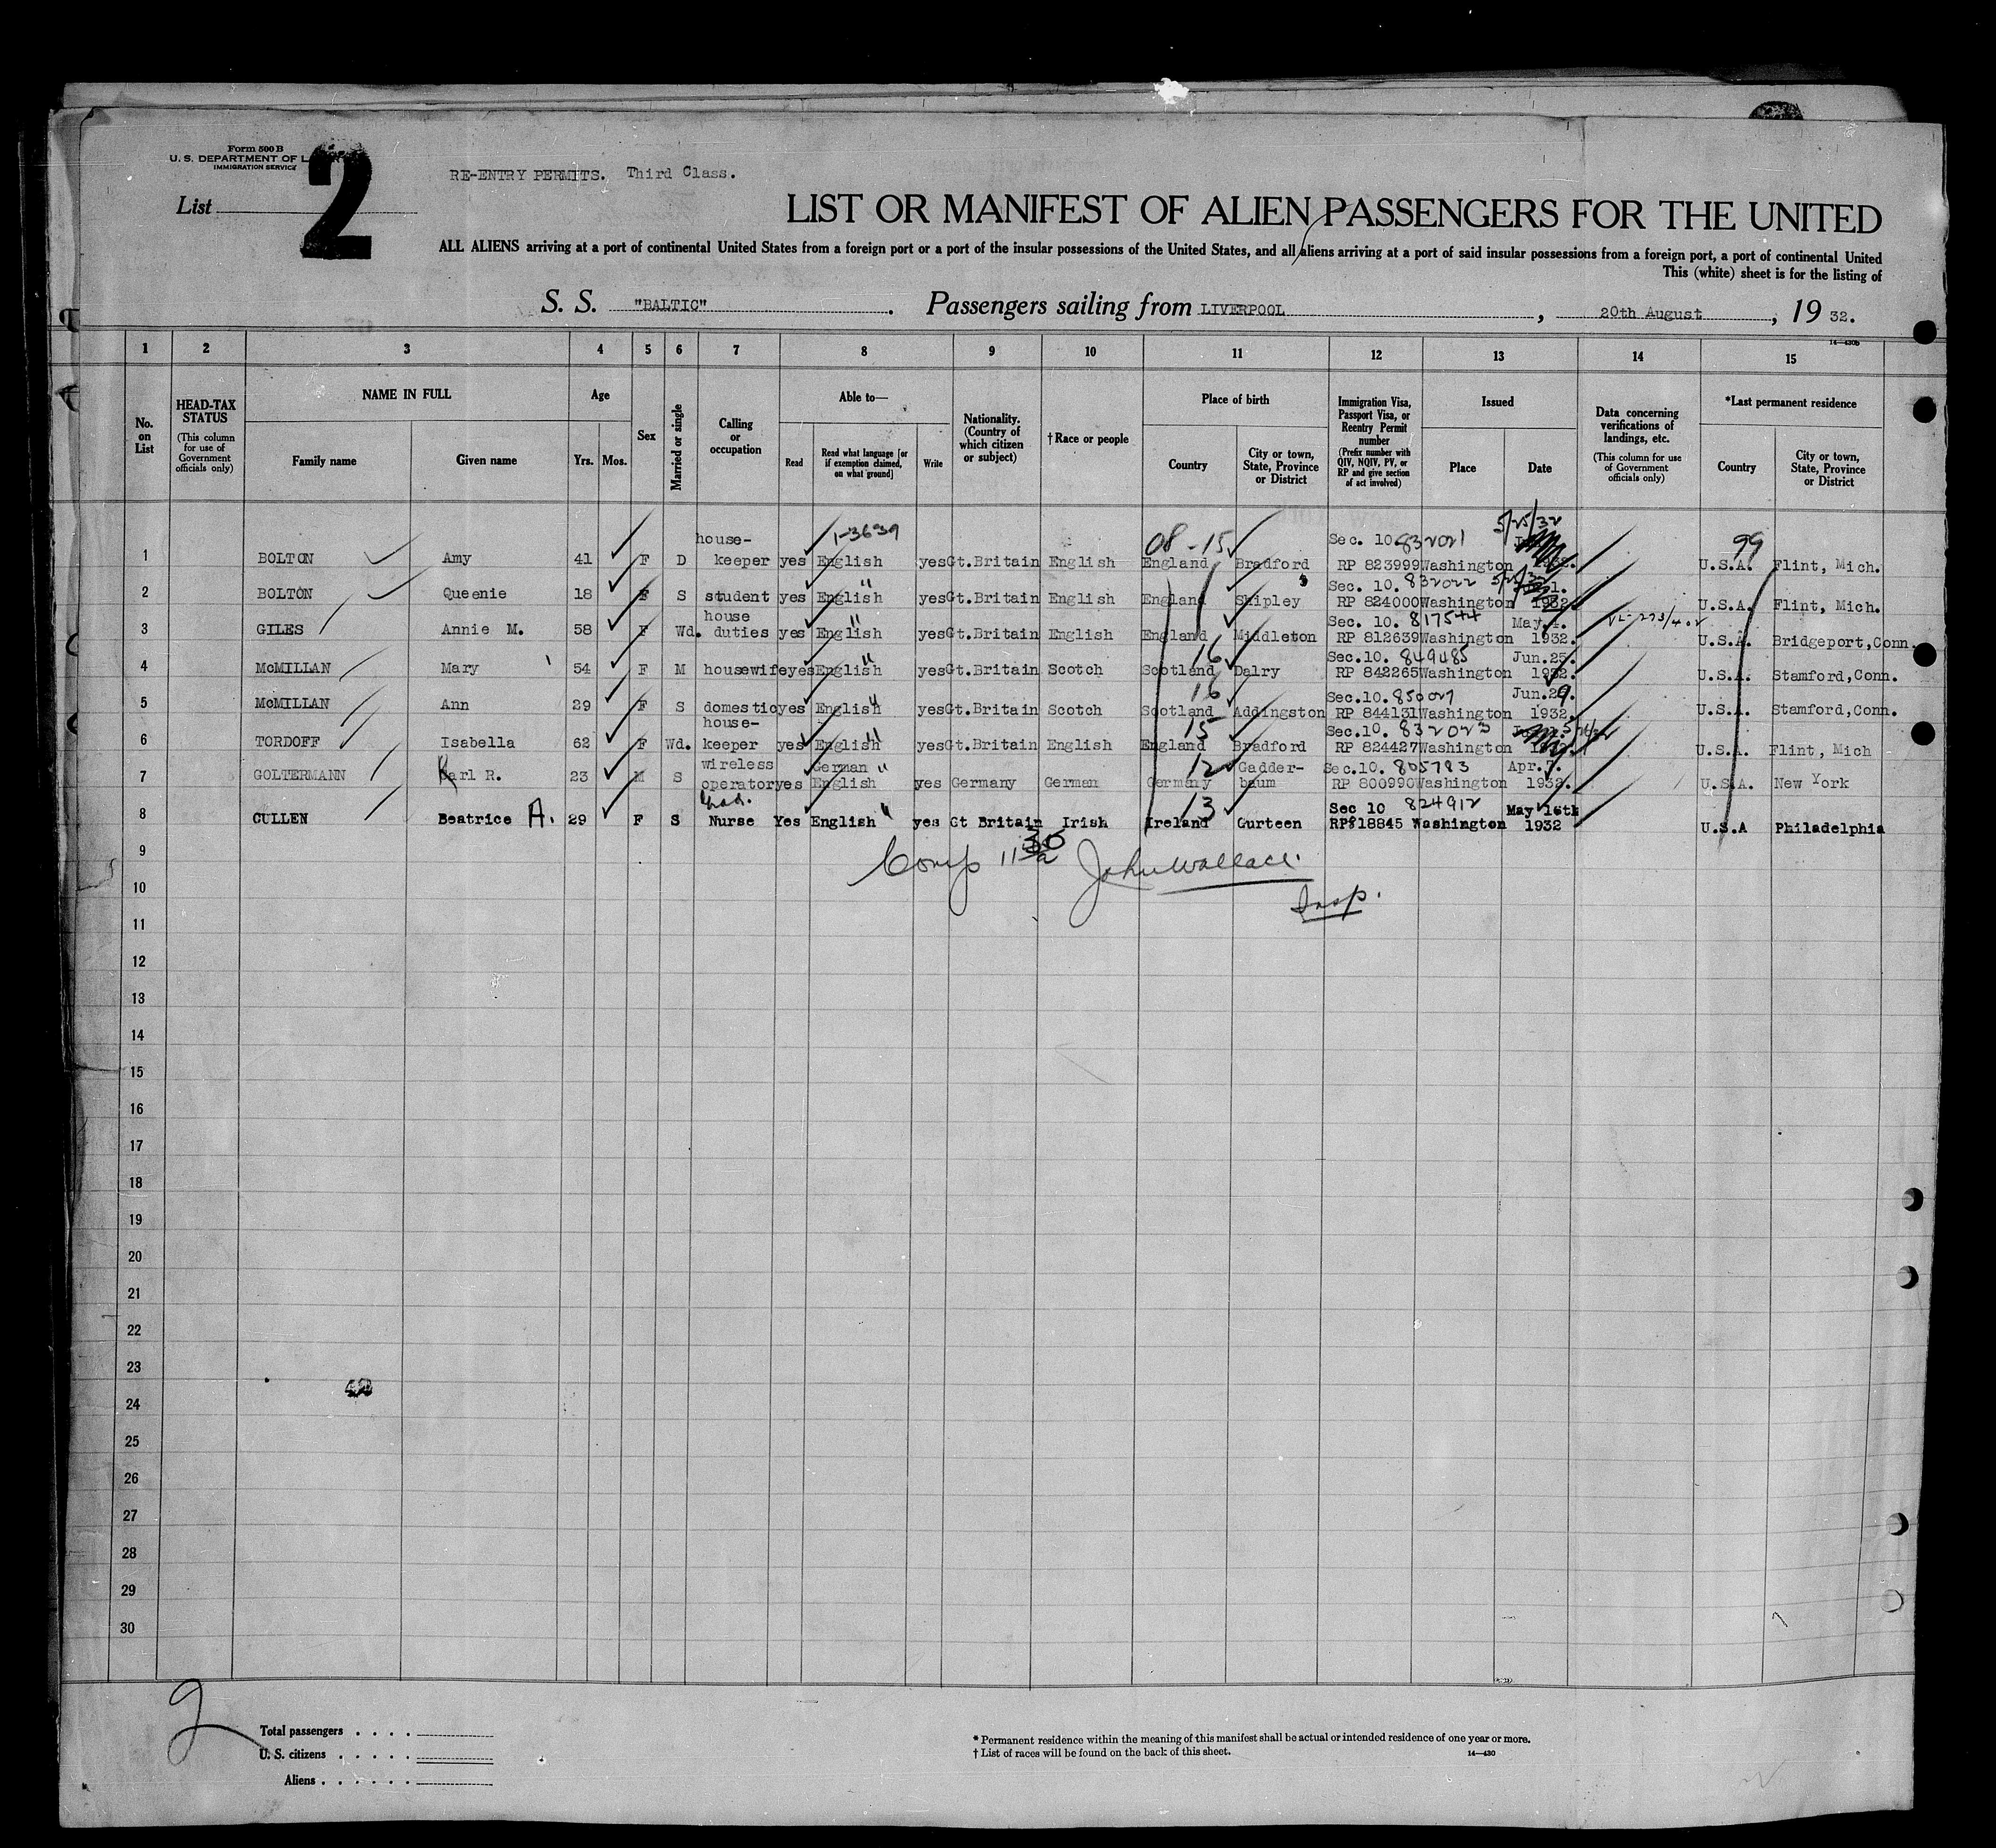 Form 500 B
U. S. DEPARTMENT OF
IMMIGRATION SERVICE
2
RE-ENTRY PERMITS. Third Class.
List
LIST OR MANIFEST OF ALIEN PASSENGERS FOR THE UNITED
ALL ALIENS arriving at a port of continental United States from a foreign port or a port of the insular possessions of the United States, and all aliens arriving at a port of said insular possessions from a foreign port, a port of continental United
This (white) sheet is for the listing of
S. S. "BALTIC". Passengers sailing from LIVERPOOL, 20th August, 19 32.
14—430b
1 2 3 4 5 6 7 8 9 10 11 12 13 14 15
No. on List
HEAD-TAX STATUS
(This column for use of Government officials only)
NAME IN FULL
Family name Given name
Age
Yrs. Mos.
Sex
Married or single
Calling or occupation
Able to—
Read
Read what language [or if exemption claimed, on what ground]
Write
Nationality. (Country of which citizen or subject)
† Race or people
Place of birth
Country
City or town, State, Province or District
Immigration Visa, Passport Visa, or Reentry Permit number
(Prefix number with QIV, NQIV, PV, or RP and give section of act involved)
Issued
Place Date
Data concerning verifications of landings, etc.
(This column for use of Government officials only)
*Last permanent residence
Country
City or town, State, Province or District
house- 1-3639 08-15 Sec. 10. 832021 5/25/32 99
1 BOLTON Amy 41 F D keeper yes English yes Gt.Britain English England Bradford RP 823999 Washington 1932. U.S.A. Flint, Mich.
" Sec. 10. 832022 5/25/32
2 BOLTON Queenie 18 F S student yes English yes Gt.Britain English England Shipley RP 824000 Washington 1932 U.S.A. Flint, Mich.
house " Sec. 10. 817544 May.4.
3 GILES Annie M. 58 F Wd. duties yes English yes Gt.Britain English England Middleton RP 812639 Washington 1932. U.S.A. Bridgeport,Conn.
" 16 Sec.10. 849485 Jun.25.
4 McMILLAN Mary 54 F M housewife yes English yes Gt.Britain Scotch Scotland Dalry RP 842265 Washington 1932. U.S.A. Stamford,Conn.
" 16 Sec.10. 850027 Jun.29.
5 McMILLAN Ann 29 F S domestic yes English yes Gt.Britain Scotch Scotland Addingston RP 844131 Washington 1932. U.S.A. Stamford,Conn.
house- " 15 Sec.10. 832023
6 TORDOFF Isabella 62 F Wd. keeper yes English yes Gt.Britain English England Bradford RP 824427 Washington 1932. U.S.A. Flint, Mich
wireless German " 12 Gadder- Sec.10. 805783 Apr.7.
7 GOLTERMANN Karl R. 23 M S operator yes English yes Germany German Germany baum RP 800990 Washington 1932. U.S.A. New York
Grad. 13 Sec 10 824912 May 16th
8 CULLEN Beatrice A. 29 F S Nurse Yes English " yes Gt Britain Irish Ireland Gurteen RP818845 Washington 1932 U.S.A Philadelphia
9
Comp 11 30 John Wallace.
10
Insp.
11
12
13
14
15
16
17
18
19
20
21
22
23
24
25
26
27
28
29
30
2
Total passengers . . . .
U. S. citizens . . . . .
Aliens . . . . . .
* Permanent residence within the meaning of this manifest shall be actual or intended residence of one year or more.
† List of races will be found on the back of this sheet. 14—430